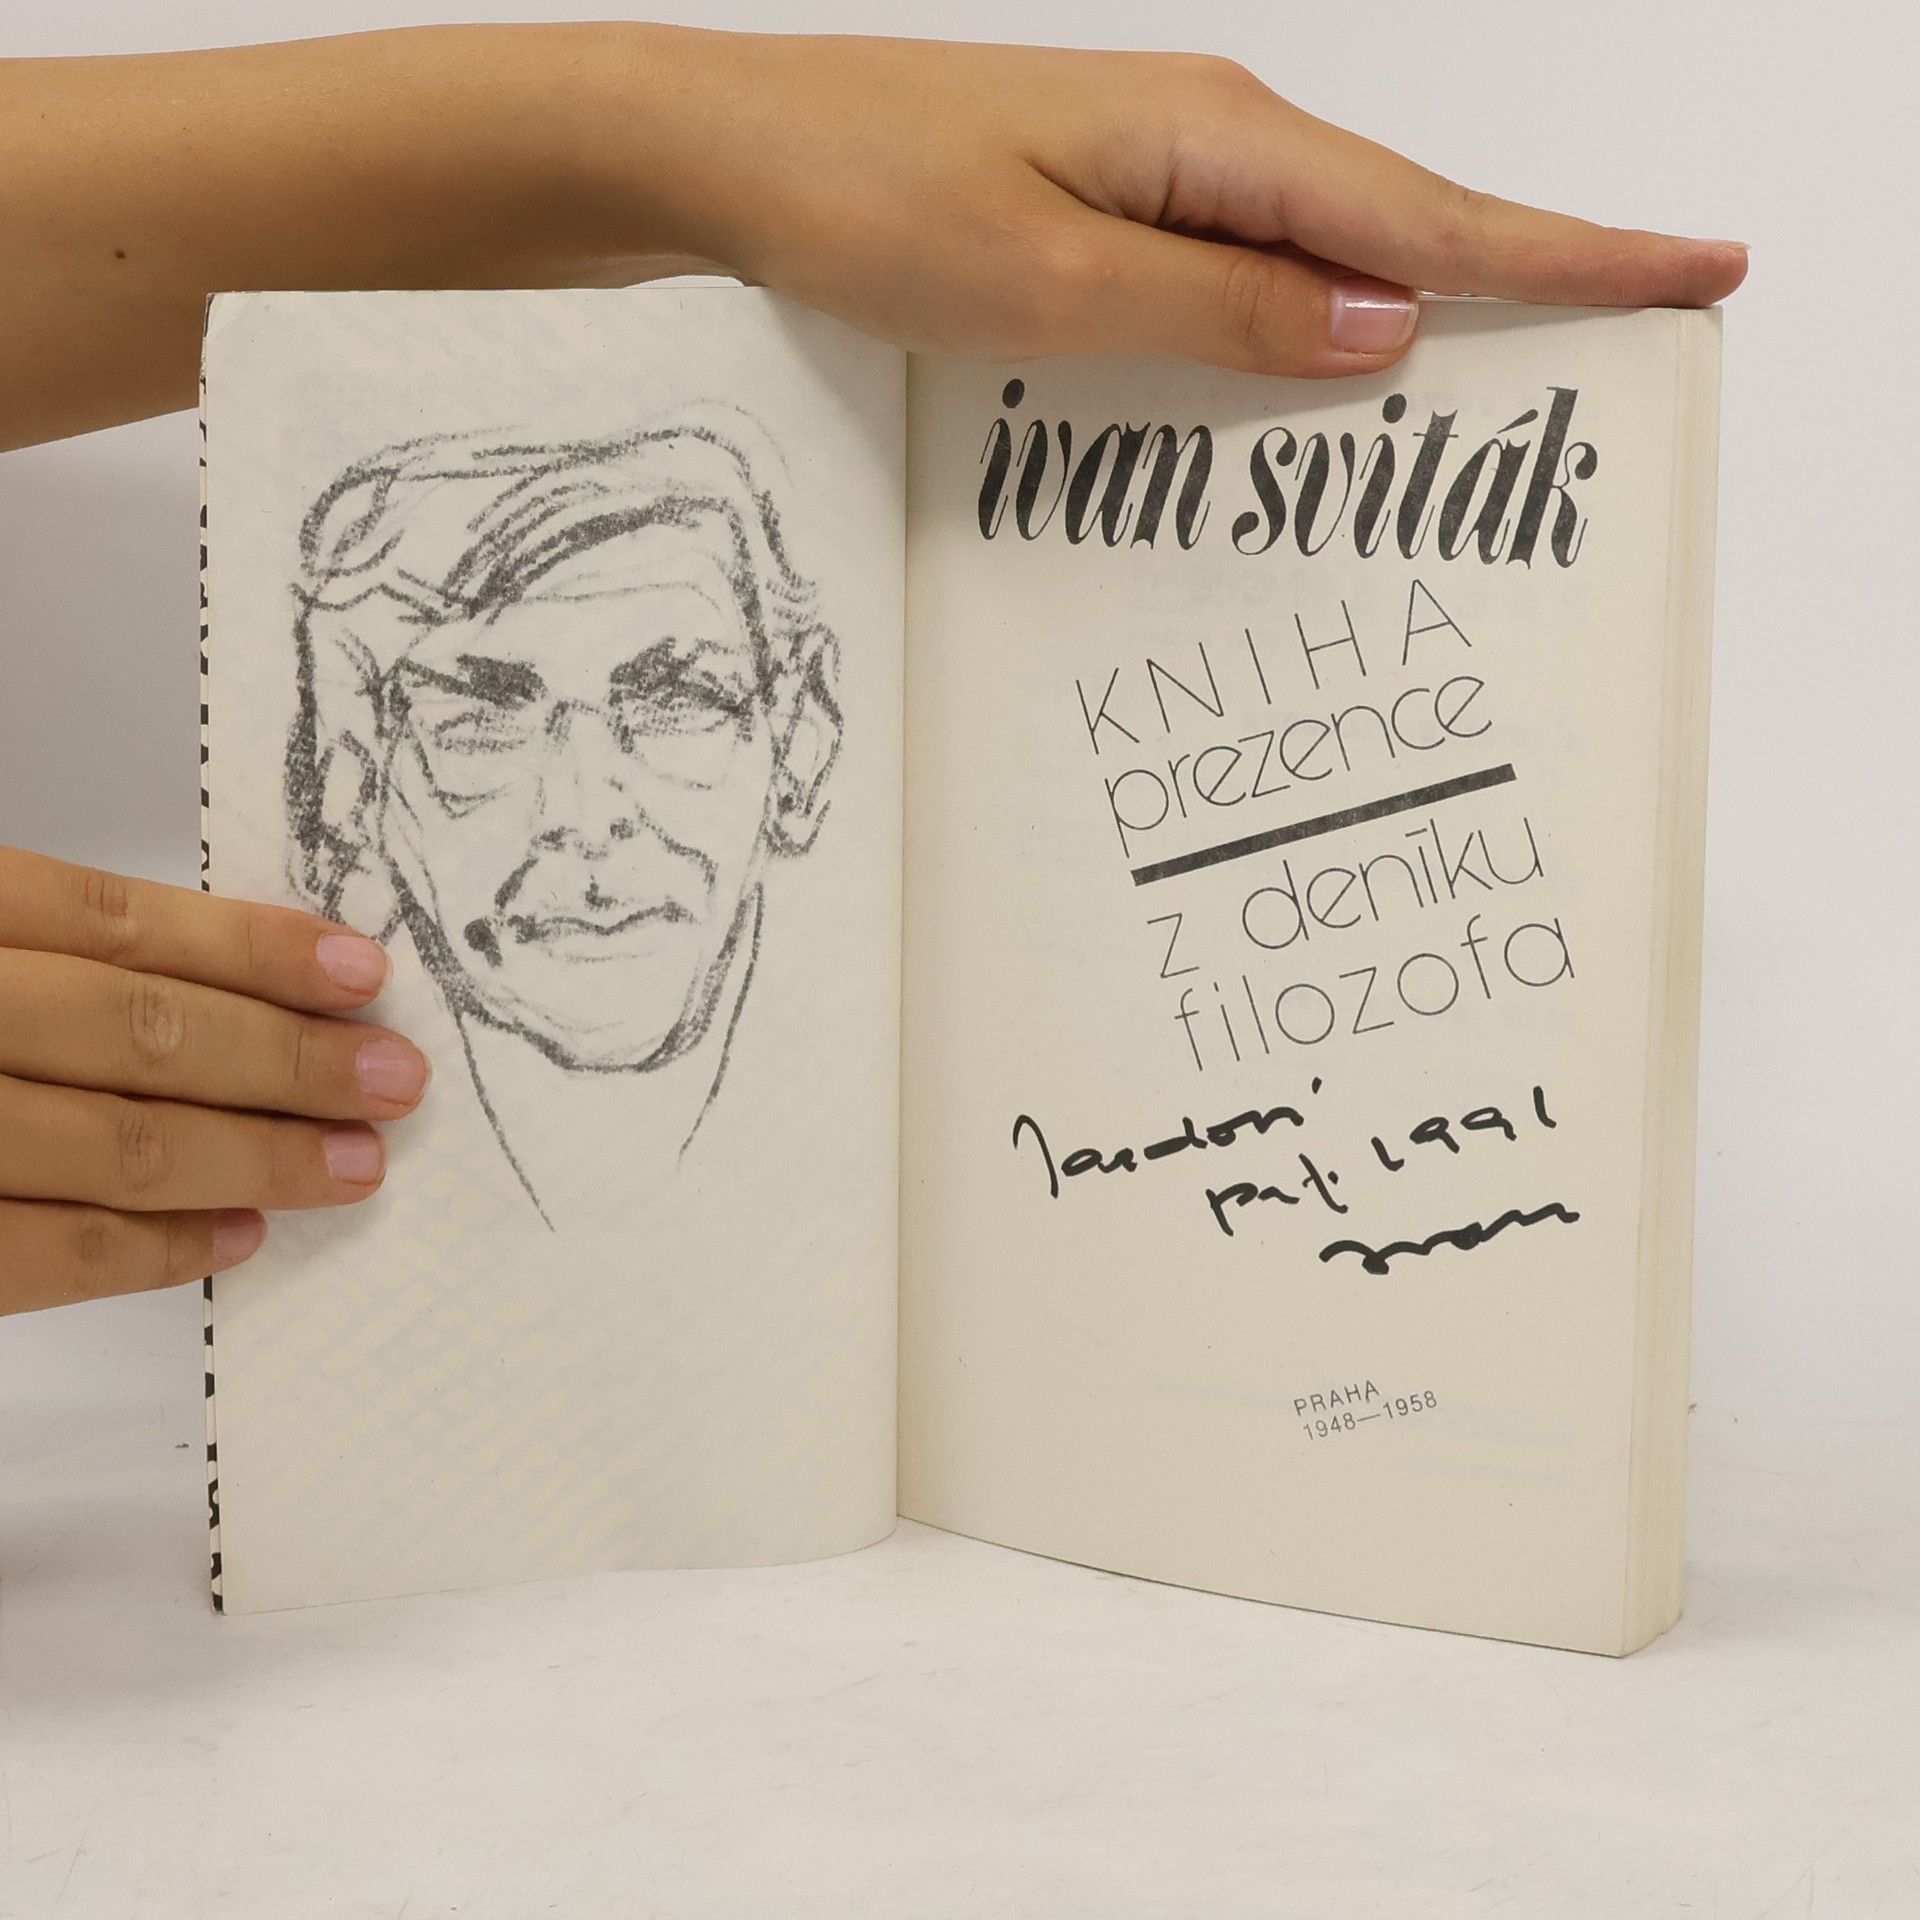 ivan sviták
KNIHA
prezence
z deníku
filozofa
1991
Ivan
PRAHA
1948—1958